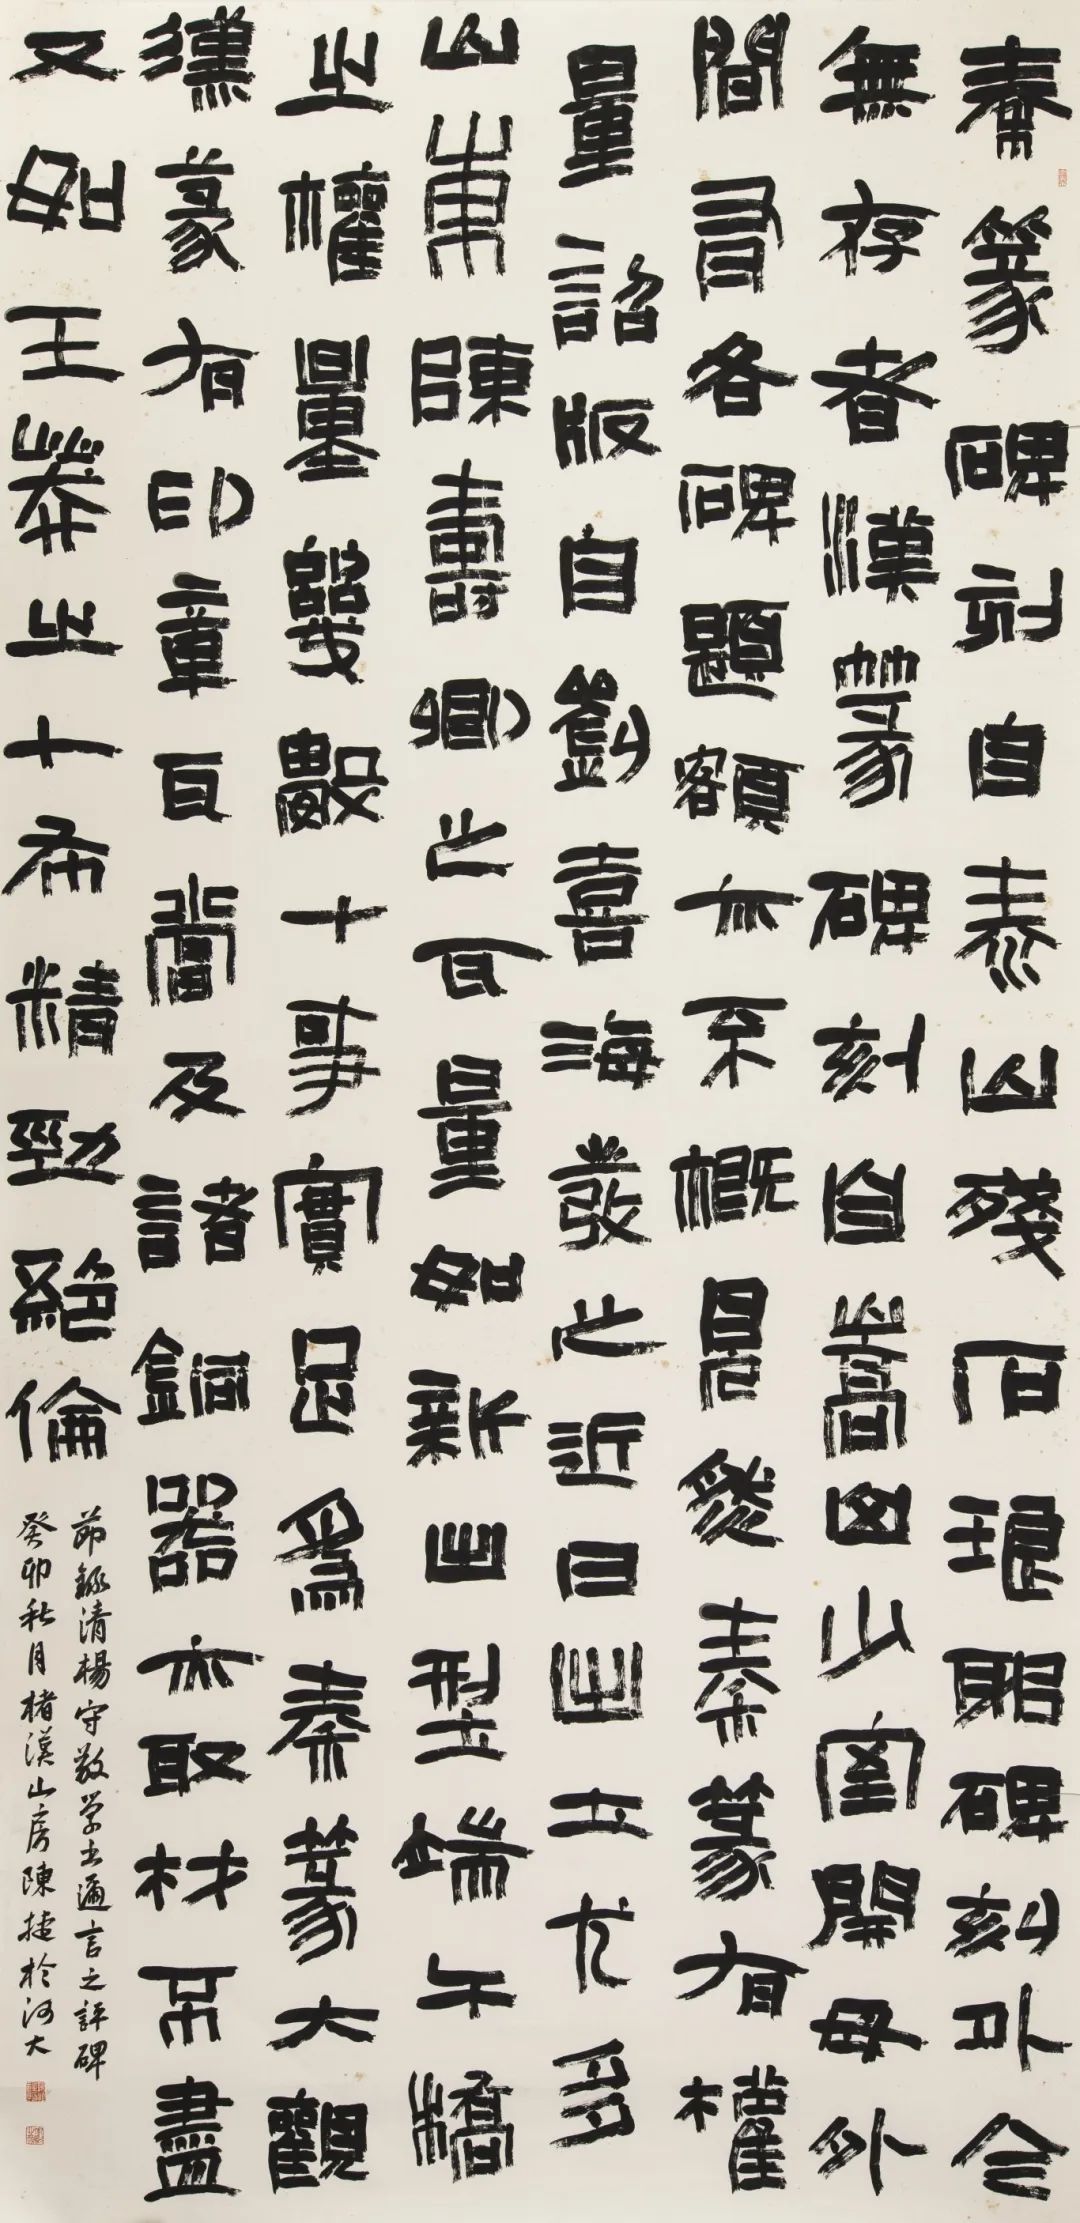 秦篆碑刻自泰山殘石琅邪碑刻外今
無存者漢篆碑刻自嵩山少室開母外
間有各碑題額亦不概見然秦篆有權
量詔版自劉喜海發之近日出土尤多
山東陳壽卿之瓦量如新出型端午橋
之權量數十事實足為秦篆大觀
漢篆有印章瓦當及諸銅器亦取材不盡
又如王莽之十布精勁絕倫
節錄清楊守敬學书邇言之評碑
癸卯秋月楮漢山房陳捷於河大